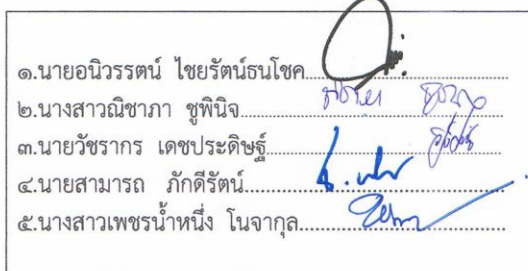 ๑.นายอนิวรรตน์ ไชยรัตน์ธนโชค
๒.นางสาวณิชาภา ชูพินิจ
๓.นายวัชรากร เดชประดิษฐ์
๔.นายสามารถ ภักดีรัตน์
๕.นางสาวเพชรน้ำหนึ่ง โนจากุล